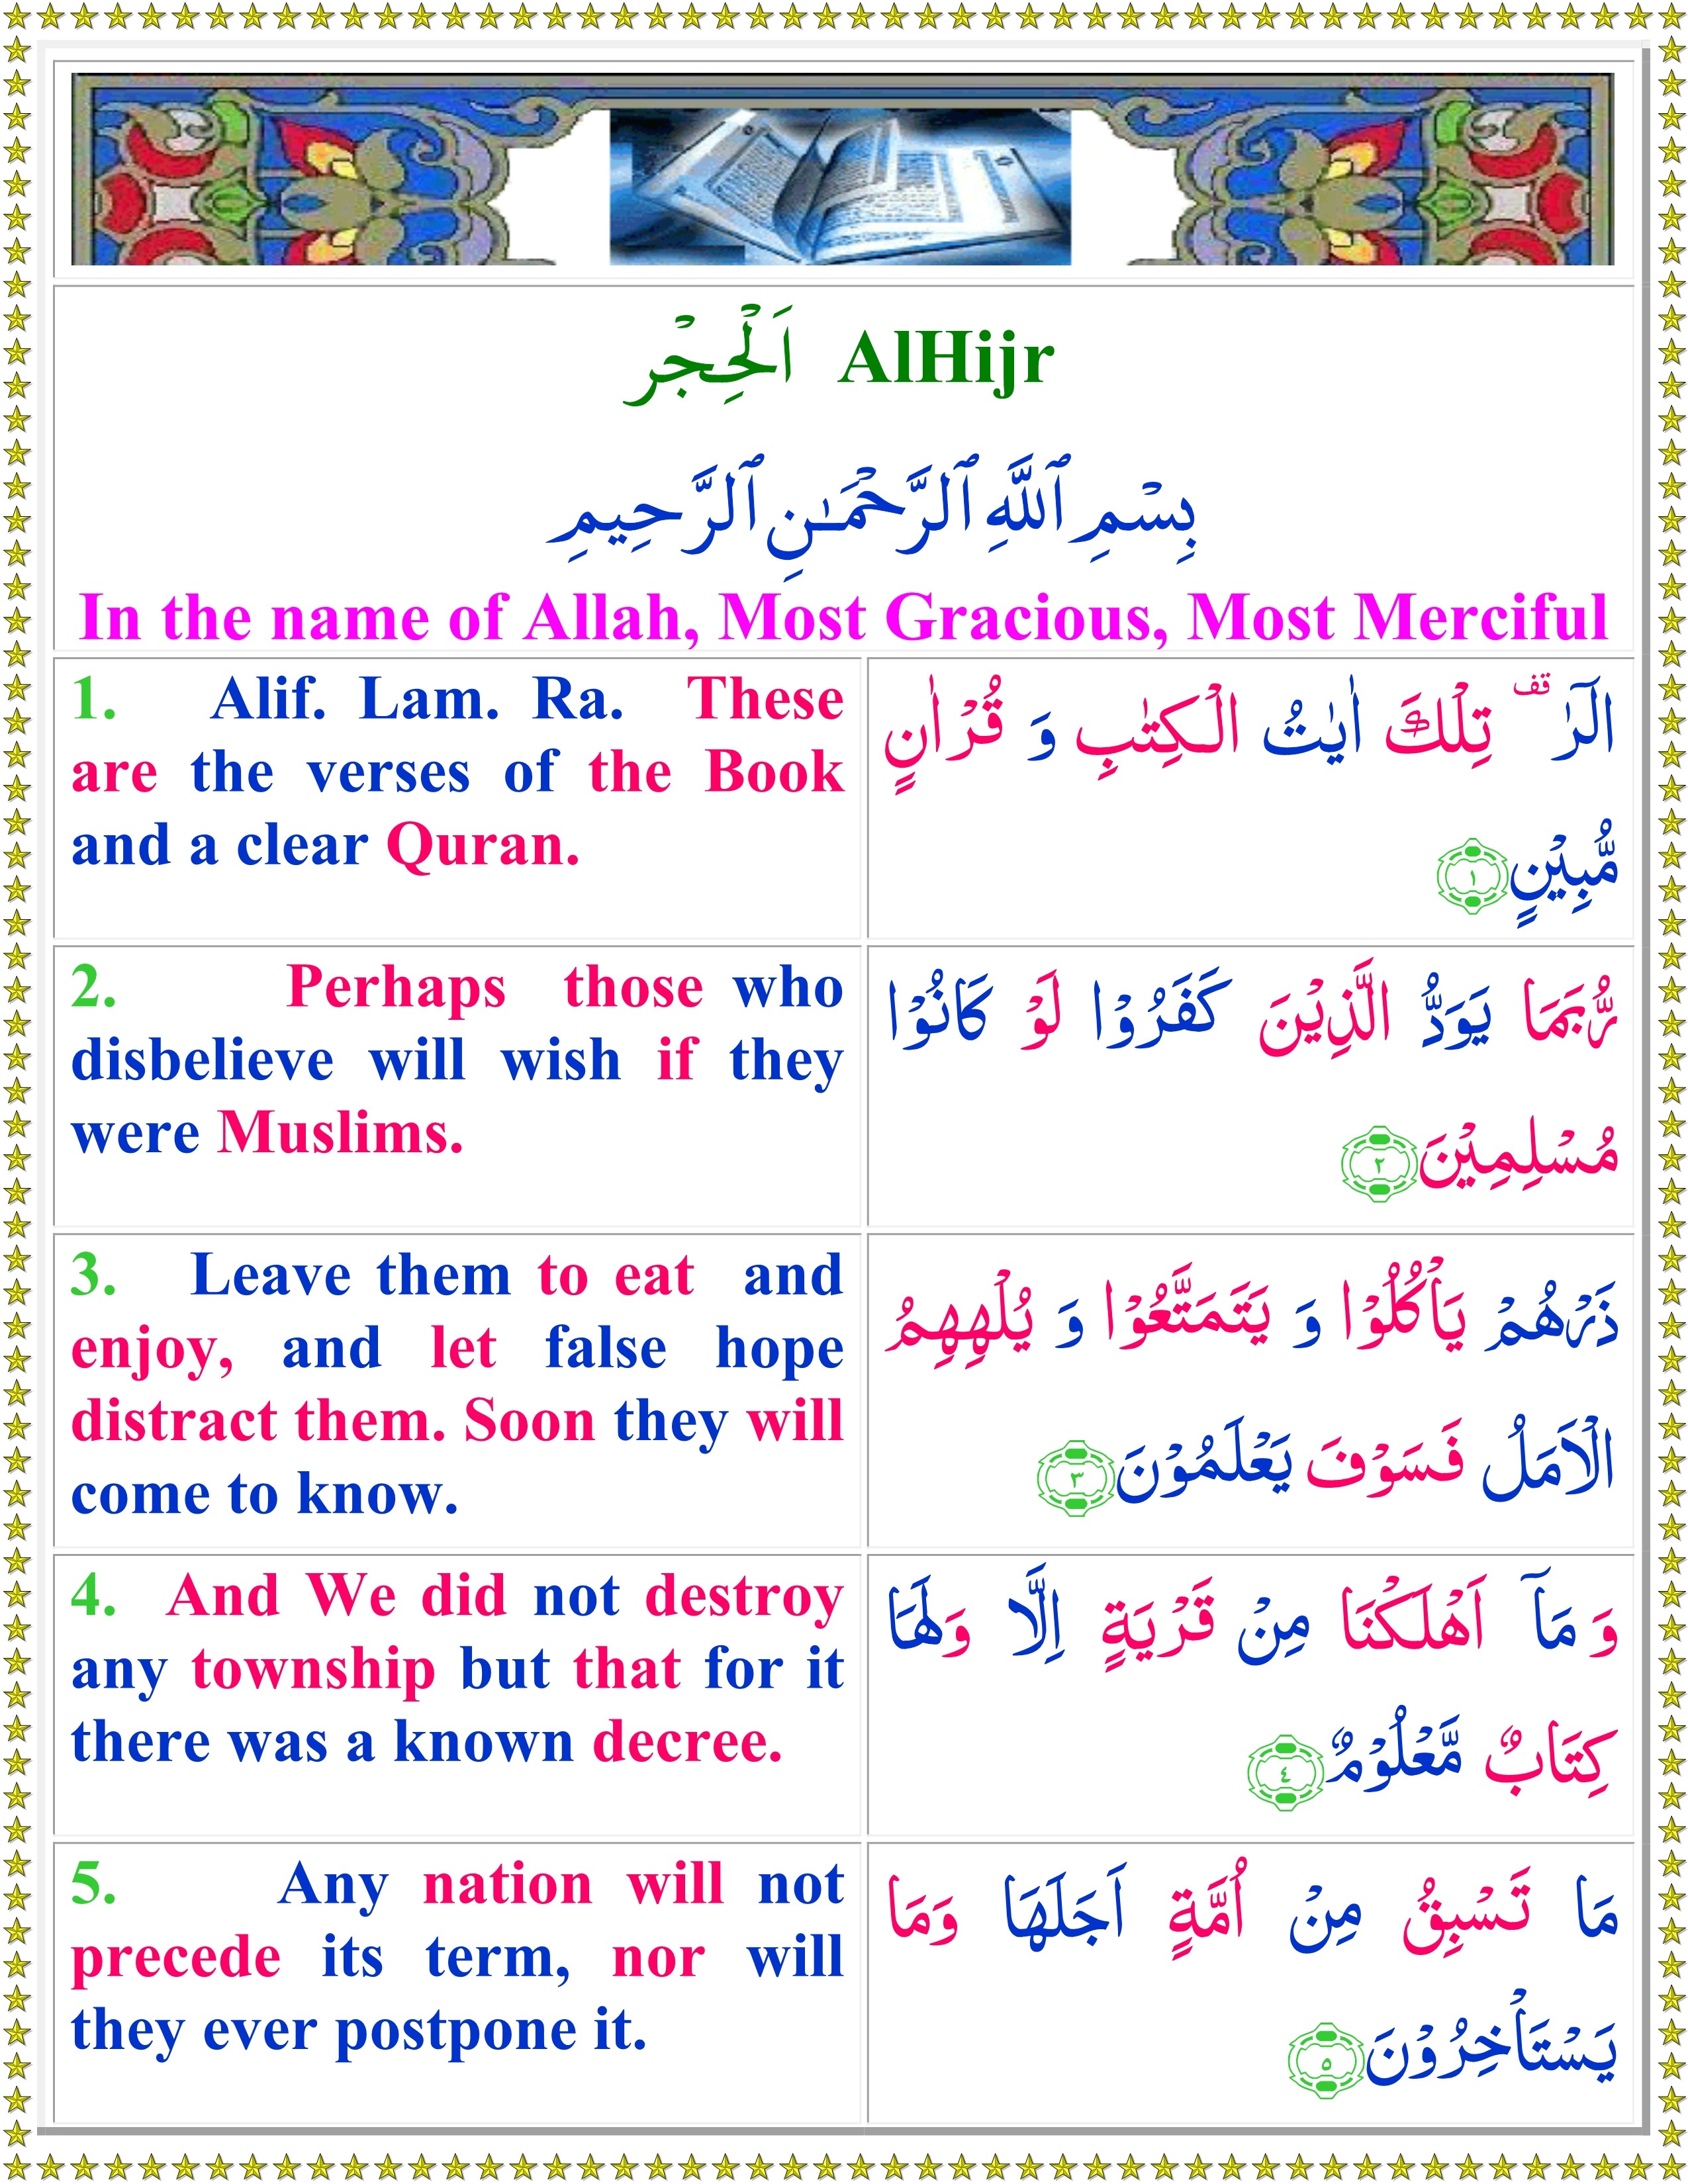 اَلْحِجْر AlHijr
بِسْمِ ٱللَّهِ ٱلرَّحْمَـٰنِ ٱلرَّحِيمِ
In the name of Allah, Most Gracious, Most Merciful
1. Alif. Lam. Ra. These
are the verses of the Book
and a clear Quran.
الٓرٰ ࣞ تِلْكَ اٰيٰتُ الْكِتٰبِ وَ قُرْاٰنٍ
مُّبِيْنٍ ١
2. Perhaps those who
disbelieve will wish if they
were Muslims.
رُّبَمَا يَوَدُّ الَّذِيْنَ كَفَرُوْا لَوْ كَانُوْا
مُسْلِمِيْنَ ٢
3. Leave them to eat and
enjoy, and let false hope
distract them. Soon they will
come to know.
ذَرْهُمْ يَاْكُلُوْا وَ يَتَمَتَّعُوْا وَ يُلْهِهِمُ
الْاَمَلُ فَسَوْفَ يَعْلَمُوْنَ ٣
4. And We did not destroy
any township but that for it
there was a known decree.
وَ مَاۤ اَهْلَكْنَا مِنْ قَرْيَةٍ اِلَّا وَلَهَا
كِتَابٌ مَّعْلُوْمٌ ٤
5. Any nation will not
precede its term, nor will
they ever postpone it.
مَا تَسْبِقُ مِنْ اُمَّةٍ اَجَلَهَا وَمَا
يَسْتَاْخِرُوْنَ ٥